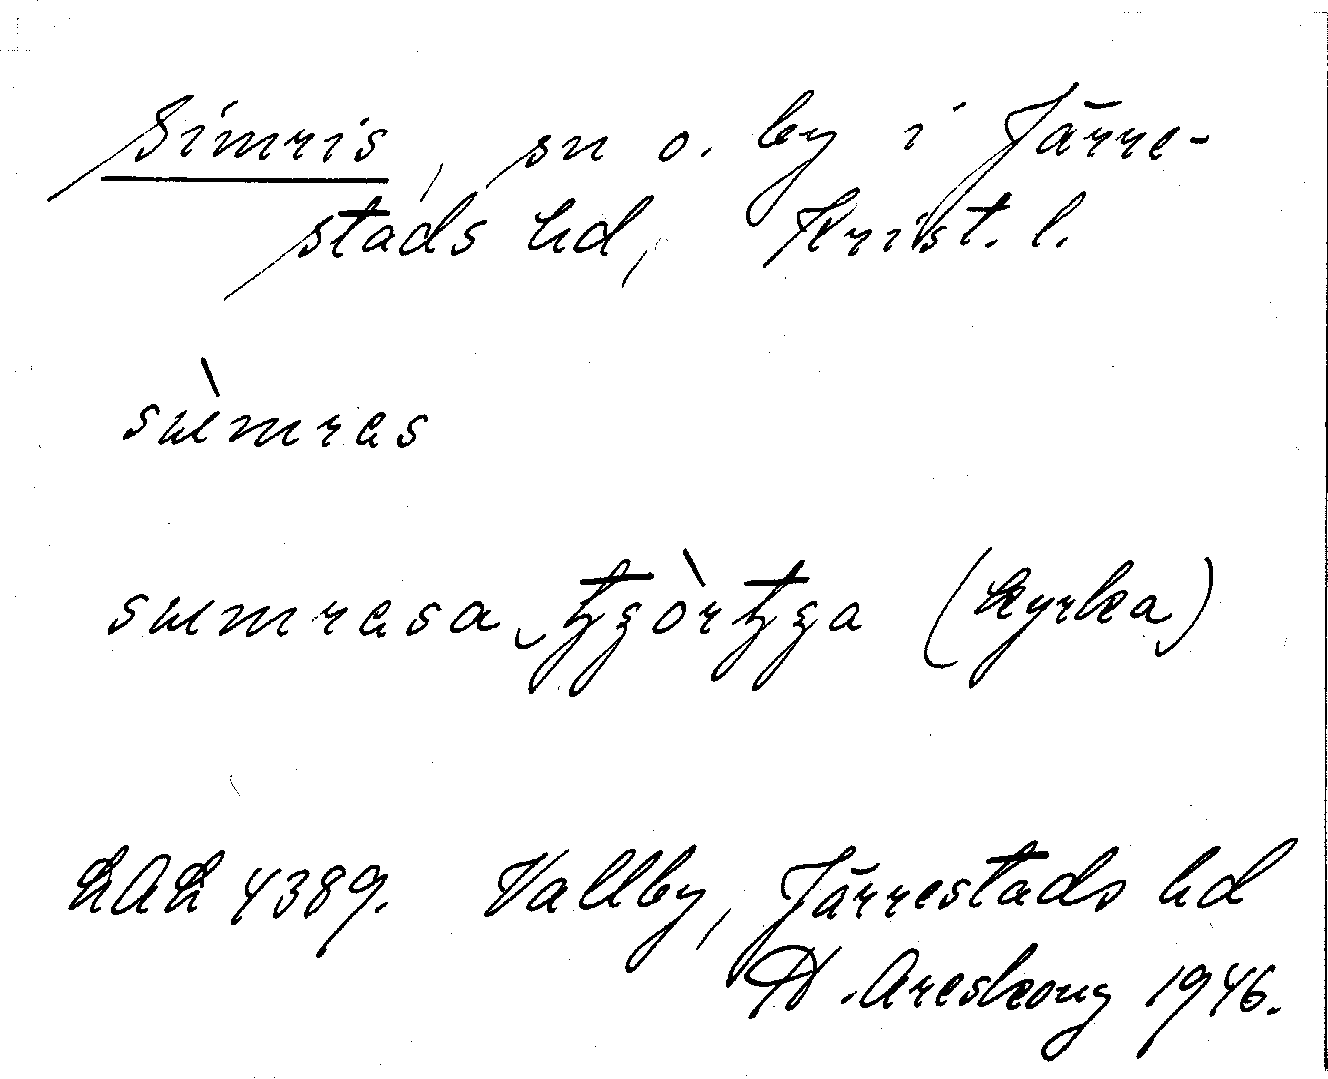 Simris, sn o. by i Järre-
stads hd, Krist. l.
sɯ̀mras
sɯmrasa
(kyrka)
LAL 4389. Vallby, Järrestads hd
Areskoug 1946.